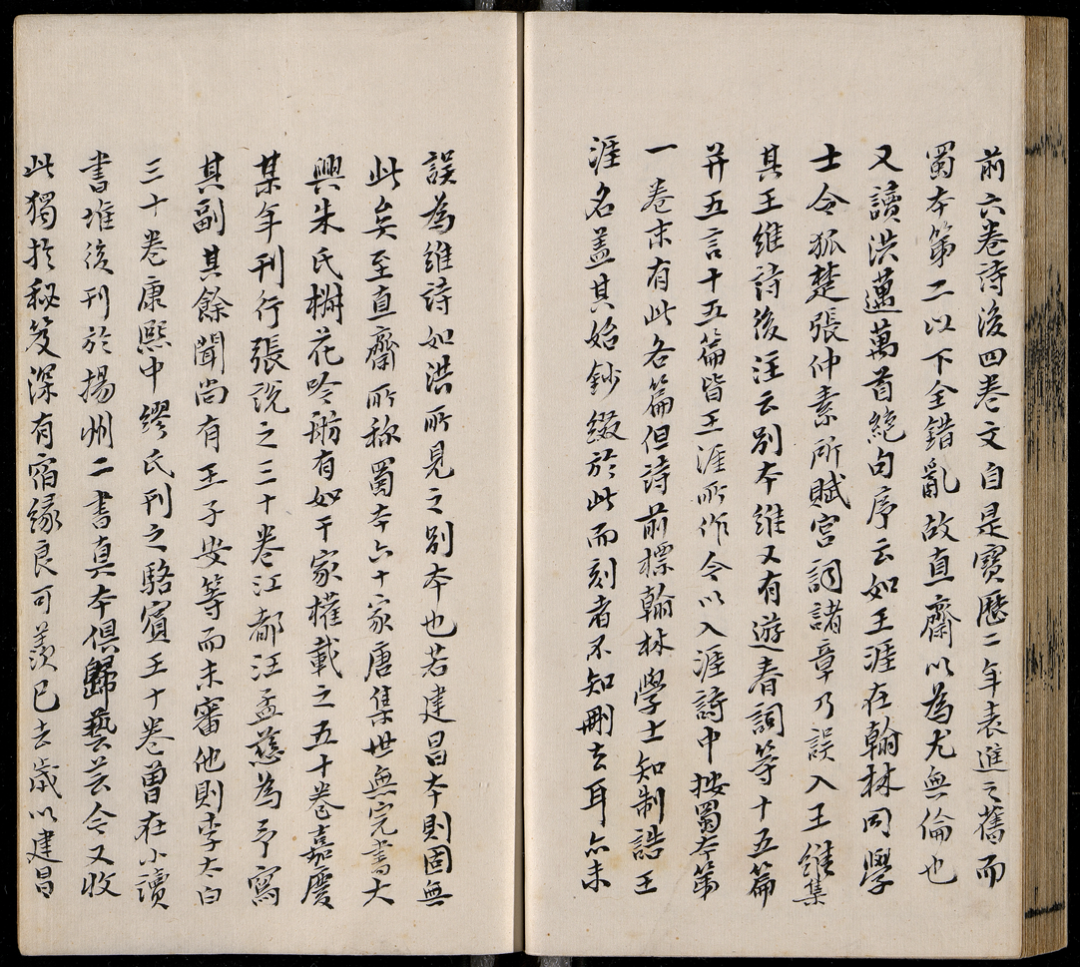 前六卷詩後四卷文自是寶歷二年表進之舊而
蜀本第二以下全錯亂故直齋以為尤無倫也
又讀洪邁萬首絶句序云如王涯在翰林同學
士令狐楚張仲素所賦宮詞諸章乃誤入王維集
其王維詩後注云別本維又有遊春詞等十五篇
并五言十五篇皆王涯所作今以入涯詩中按蜀本第
一卷末有此各篇但詩前標翰林學士知制誥王
涯名盖其始鈔綴於此而刻者不知刪去耳亦未
誤為維詩如洪所見之別本也若建昌本則固無
此矣至直齋所称蜀本六十家唐集世無完書大
興朱氏椒花吟舫有如干家權載之五十卷嘉慶
某年刊行張說之三十卷江都汪孟慈為予寫
其副其餘聞尚有王子安等而未審他則李太白
三十卷康熙中繆氏刊之駱賓王十卷曾在小讀
書堆後刊於揚州二書真本俱歸藝芸今又收
此獨於秘笈深有宿緣良可羨已去歲以建昌